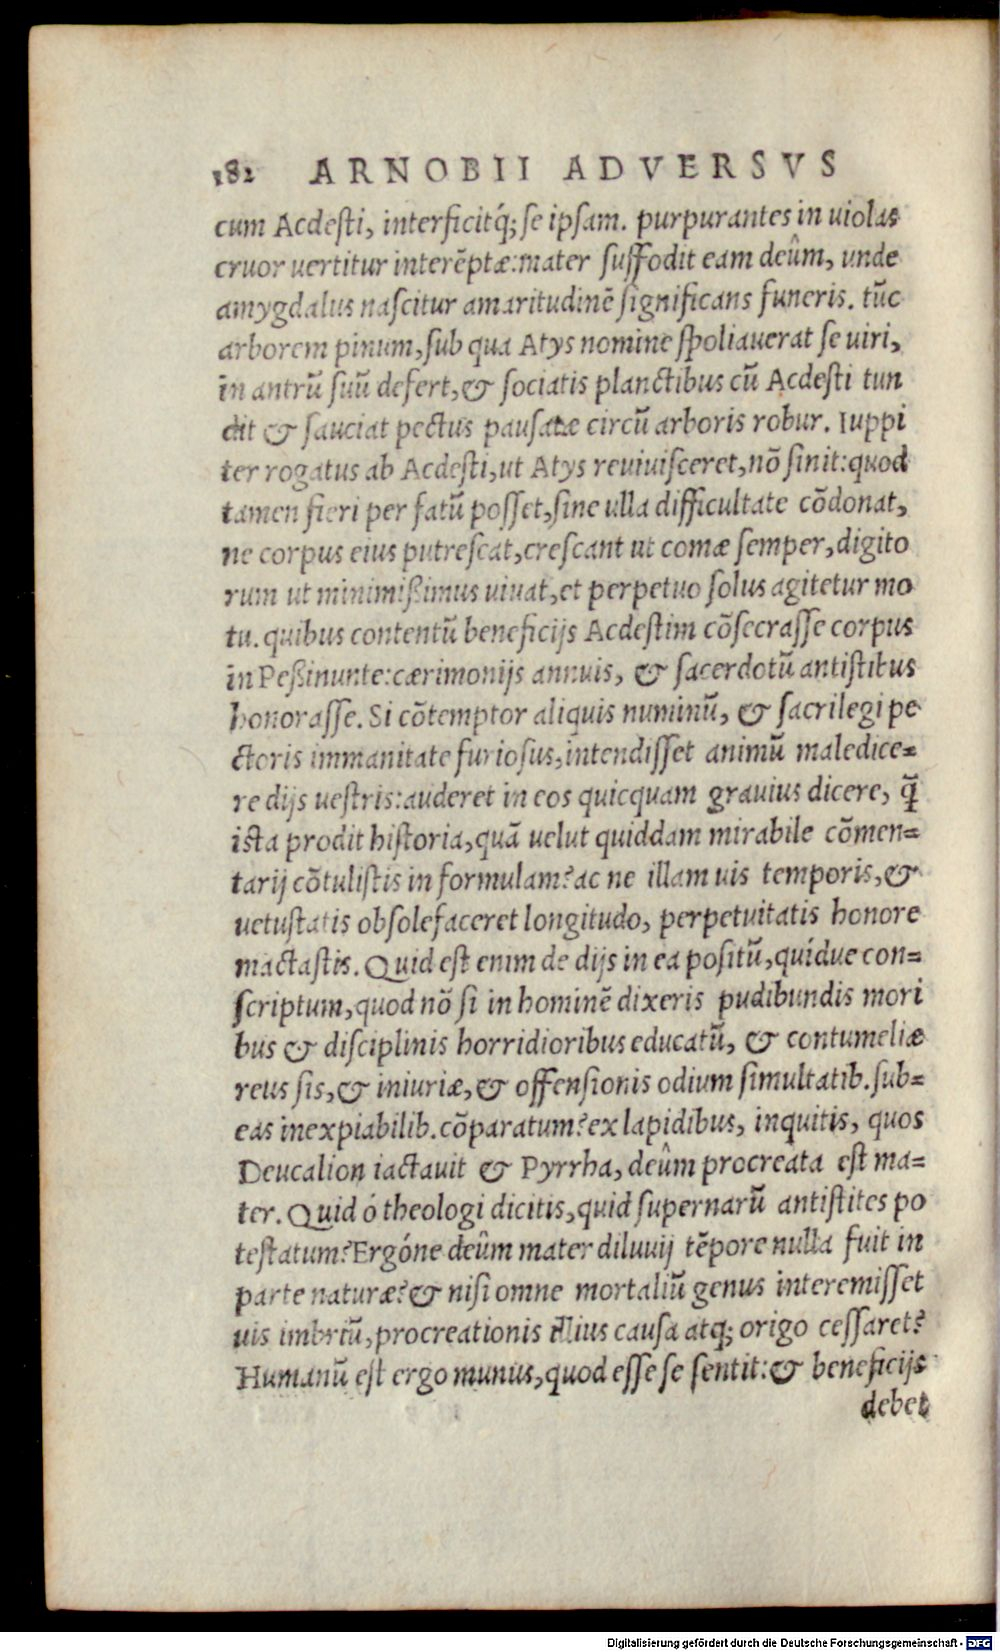 182 ARNOBII ADVERSVS
cum Acdesti, interficitq́; se ipsam. purpurantes in uiolas
cruor vertitur interẽptæ:mater suffodit eam deûm, unde
amygdalus nascitur amaritudinẽ significans funeris. tũc
arborem pinum, sub qua Atys nomine spoliauerat se uiri,
in antrũ suũ defert, & sociatis planctibus cũ Acdesti tun
dit & sauciat pectus pausatæ circũ arboris robur. Iuppi
ter rogatus ab Acdesti, ut Atys reuiuisceret, nõ sinit: quod
tamen fieri per fatũ posset, sine ulla difficultate cõdonat,
ne corpus eius putrescat, crescant ut comæ semper, digito
rum ut minimißimus uiuat, et perpetuo solus agitetur mo
tu. quibus contentũ beneficijs Acdestim cõsecrasse corpus
in Peßinunte: cærimonijs annuis, & sacerdotũ antistibus
honorasse. Si cõtemptor aliquis numinũ, & sacrilegi pe
ctoris immanitate furiosus, intendisset animũ maledice=
re dijs uestris: auderet in eos quicquam grauius dicere, q̃
ista prodit historia, quã uelut quiddam mirabile cõmen=
tarij cõtulistis in formulam? ac ne illam uis temporis, &
uetustatis obsolefaceret longitudo, perpetuitatis honore
mactastis. Quid est enim de dijs in ea positũ, quídue con=
scriptum, quod nõ si in hominẽ dixeris pudibundis mori
bus & disciplinis horridioribus educatũ, & contumeliæ
reus sis, & iniuriæ, & offensionis odium simultatib. sub=
eas inexpiabilib. cõparatum? ex lapidibus, inquitis, quos
Deucalion iactauit & Pyrrha, deûm procreata est ma=
ter. Quid ó theologi dicitis, quid supernarũ antistites po
testatum? Ergóne deûm mater diluuij tẽpore nulla fuit in
parte naturæ? & nisi omne mortaliũ genus interemisset
uis imbriũ, procreationis illius causa atq; origo cessaret?
Humanũ est ergo munus, quod esse se sentit: & beneficijs
debet
Digitalisierung gefördert durch die Deutsche Forschungsgemeinschaft - DFG